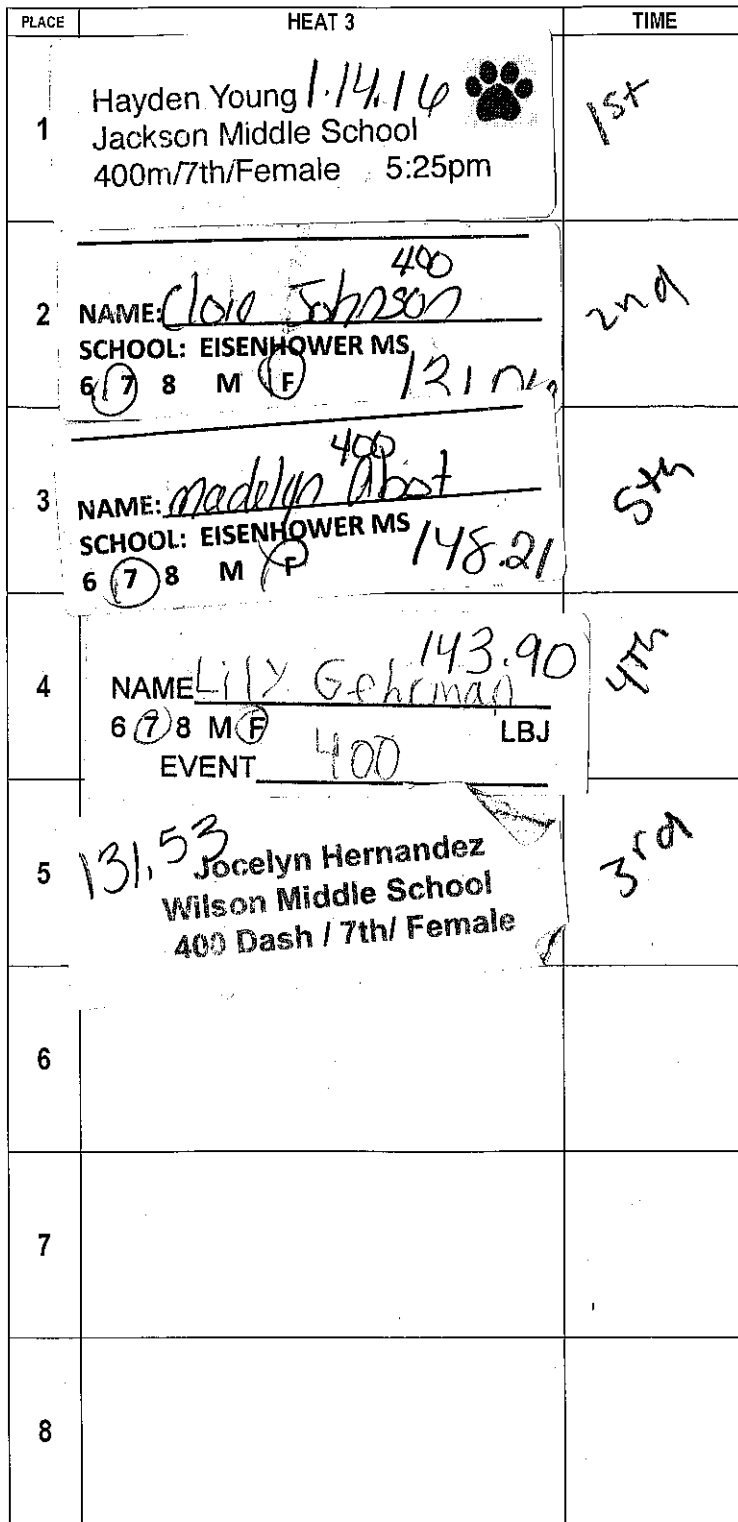 PLACE HEAT 3 TIME
1 Hayden Young 1.14.16 1st
Jackson Middle School
400m/7th/Female 5:25pm
400
2 NAME: Johnson 2nd
SCHOOL: EISENHOWER MS
6 7 8 M F 121
400
3 NAME: Madelyn Abot 5th
SCHOOL: EISENHOWER MS
6 7 8 M F 148.21
143.90
4 NAME Lily Gehrman 4th
6 7 8 M F LBJ
EVENT 400
5 131.53 Jocelyn Hernandez 3rd
Wilson Middle School
400 Dash / 7th/ Female
6
7
8